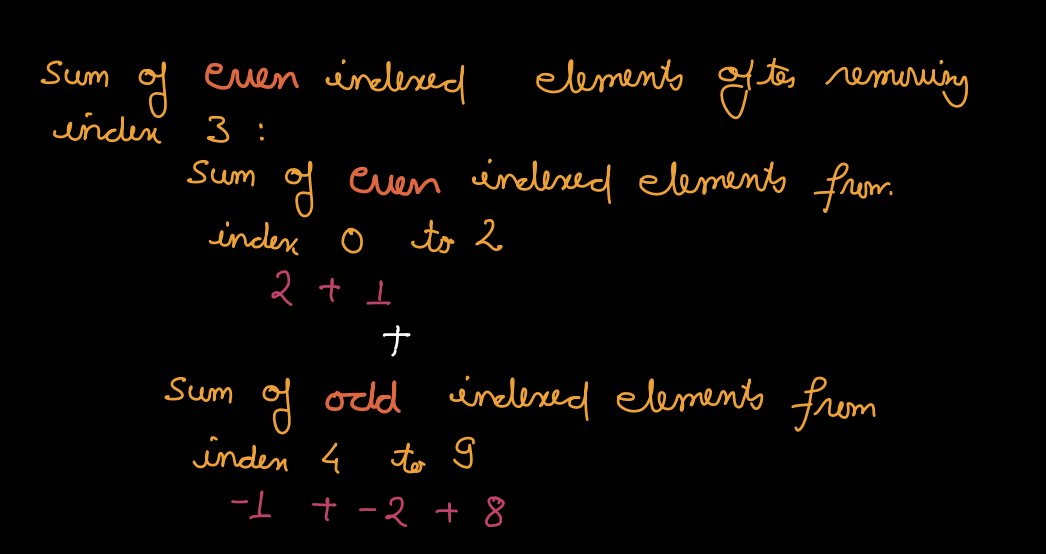 Sum of even indexed elements after removing
index 3 :
Sum of even indexed elements from
index 0 to 2
2 + 1
+
Sum of odd indexed elements from
index 4 to 9
-1 + -2 + 8